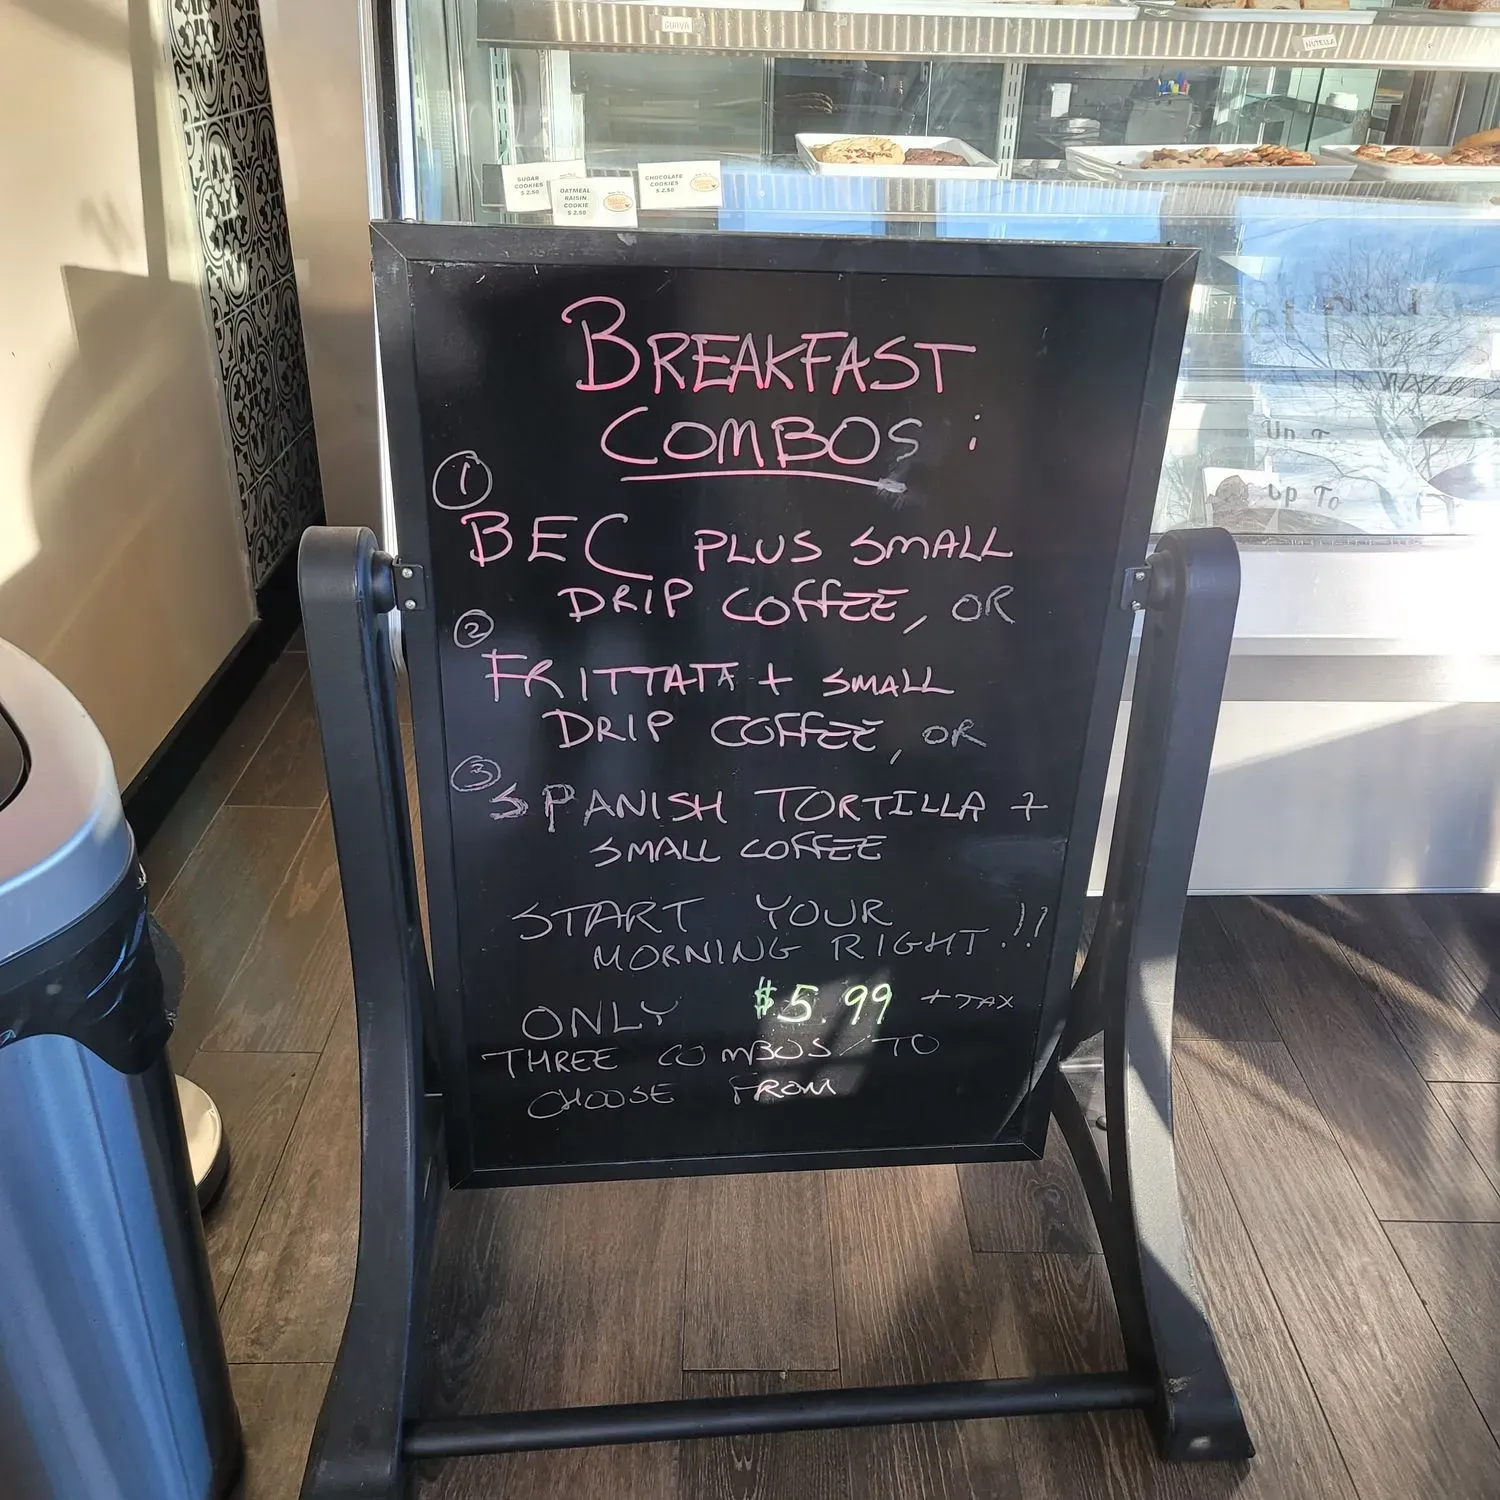 GUAVA
NUTELLA
SUGAR
COOKIES
$ 2.50
OATMEAL
RAISIN
COOKIE
$ 2.50
CHOCOLATE
COOKIES
$ 2.50
BREAKFAST
COMBOS :
1
BEC PLUS SMALL
DRIP COFFEE, OR
2
FRITTATA + SMALL
DRIP COFFEE, OR
3
SPANISH TORTILLA +
SMALL COFFEE
START YOUR
MORNING RIGHT.!!
ONLY $5.99 + TAX
THREE COMBOS TO
CHOOSE FROM
up To